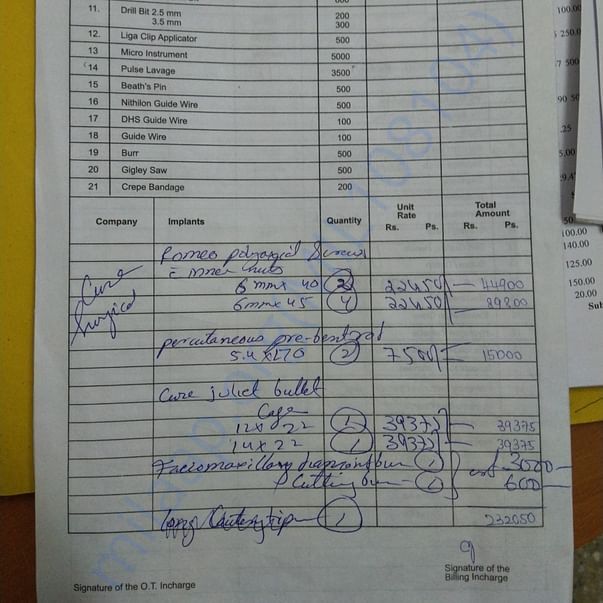 11. Drill Bit 2.5 mm 200
3.5 mm 300
12. Liga Clip Applicator 500
13 Micro Instrument 5000
14 Pulse Lavage 3500
15 Beath's Pin 500
16 Nithilon Guide Wire 500
17 DHS Guide Wire 100
18 Guide Wire 100
19 Burr 500
20 Gigley Saw 500
21 Crepe Bandage 200
Company Implants Quantity Unit Rate Rs. Ps. Total Amount Rs. Ps.
Romeo Screws
Cure Surgical
6mm x 40 2 22450 44900
6mm x 45 4 22450 89800
percutaneous pre-bent rod
5.4 x 170 2 7500 15000
Cure juliet bullet
Cage
12 x 22 1 39375 39375
14 x 22 1 39375 39375
Faciomaxillary diamond burr 1 3000
Cutting burr 1 600
Cautery tip 1 232050
Signature of the O.T. Incharge
Signature of the
Billing Incharge
100.00
250.0
500
90 50
.25
5.00
100.00
140.00
125.00
150.00
20.00